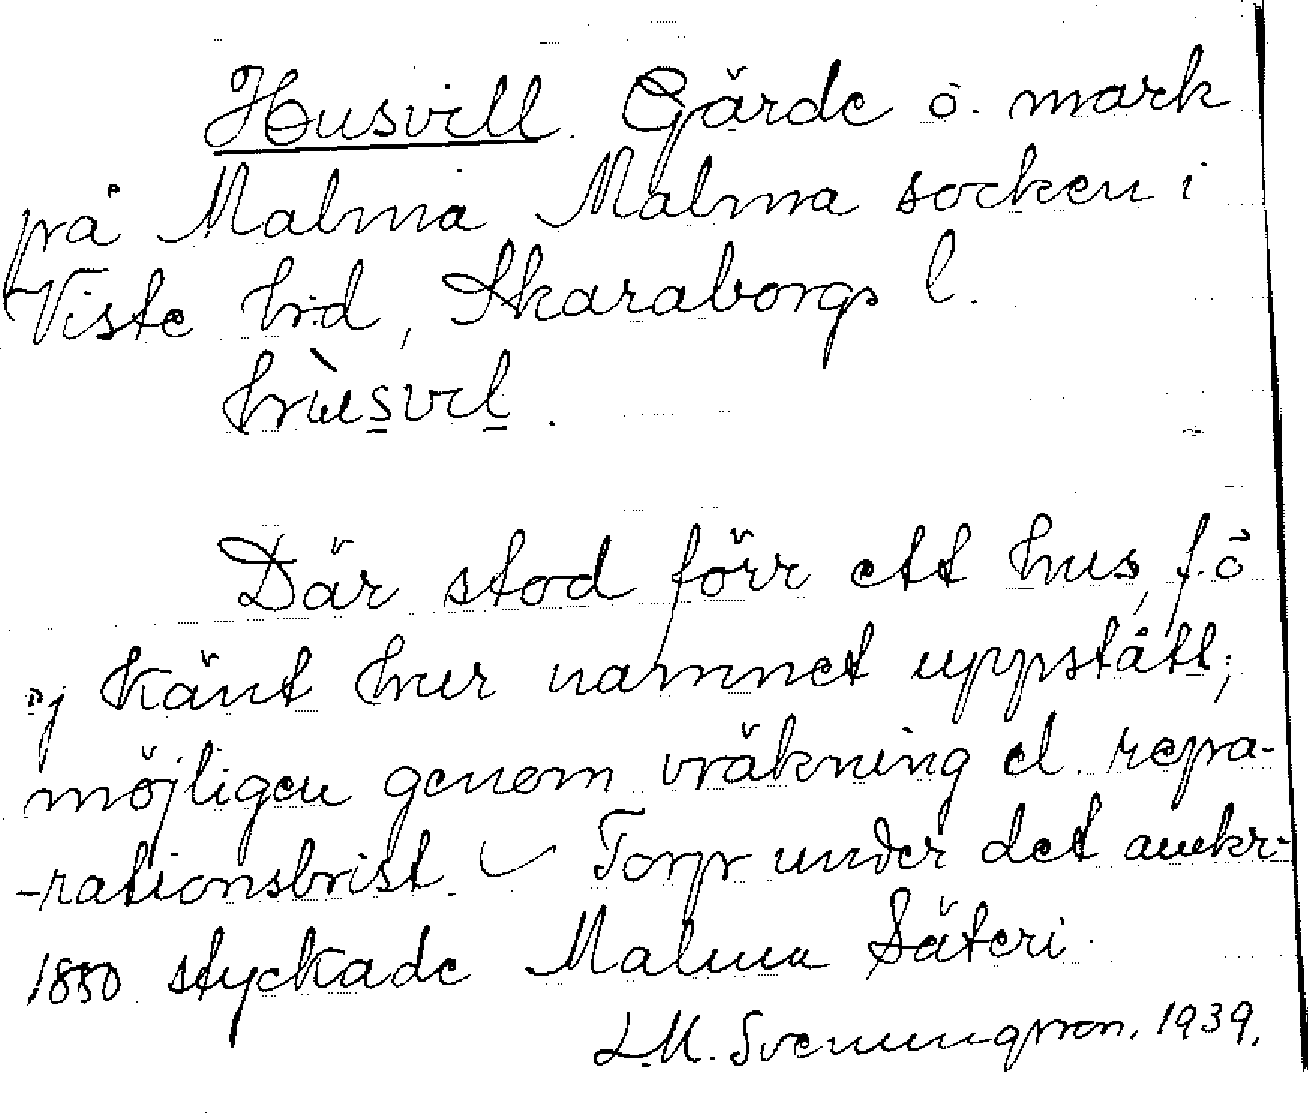 Husvill. Gärde o. mark
på Malma Malma socken i
Viste hd, Skaraborgs l.
hùsvil.
Där stod förr ett hus, f. ö
ej känt hur namnet uppstått;
möjligen genom vräkning el. repa-
-rationsbrist. Torp under det omkr.
1850 styckade Malma Säteri.
L.M. Svenungsson. 1939.